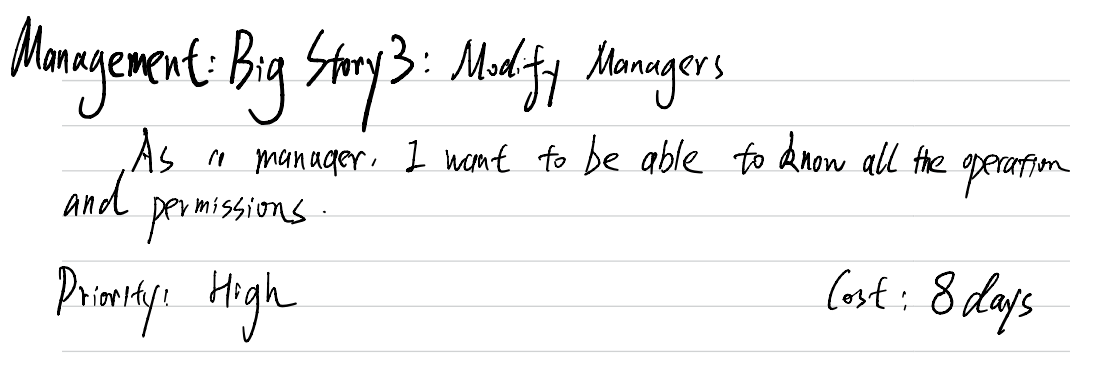 Management: Big Story 3: Modify Managers
As a manager, I want to be able to know all the operation
and permissions.
Priority: High
Cost: 8 days